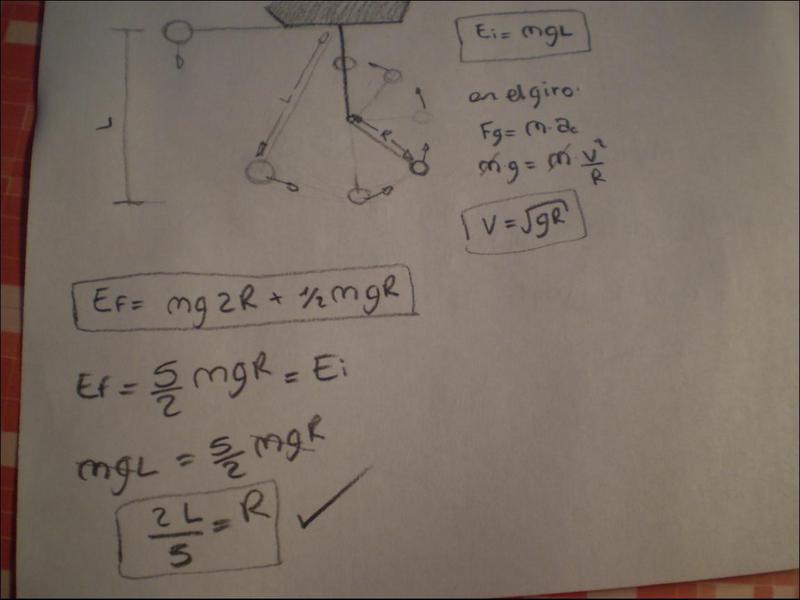 Ei = mgL
L
L
R
en el giro.
Fg = m·ac
m·g = m·V²/R
V = √gR
EF = mg2R + 1/2 mgR
EF = 5/2 mgR = Ei
mgL = 5/2 mgR
2L/5 = R ✓